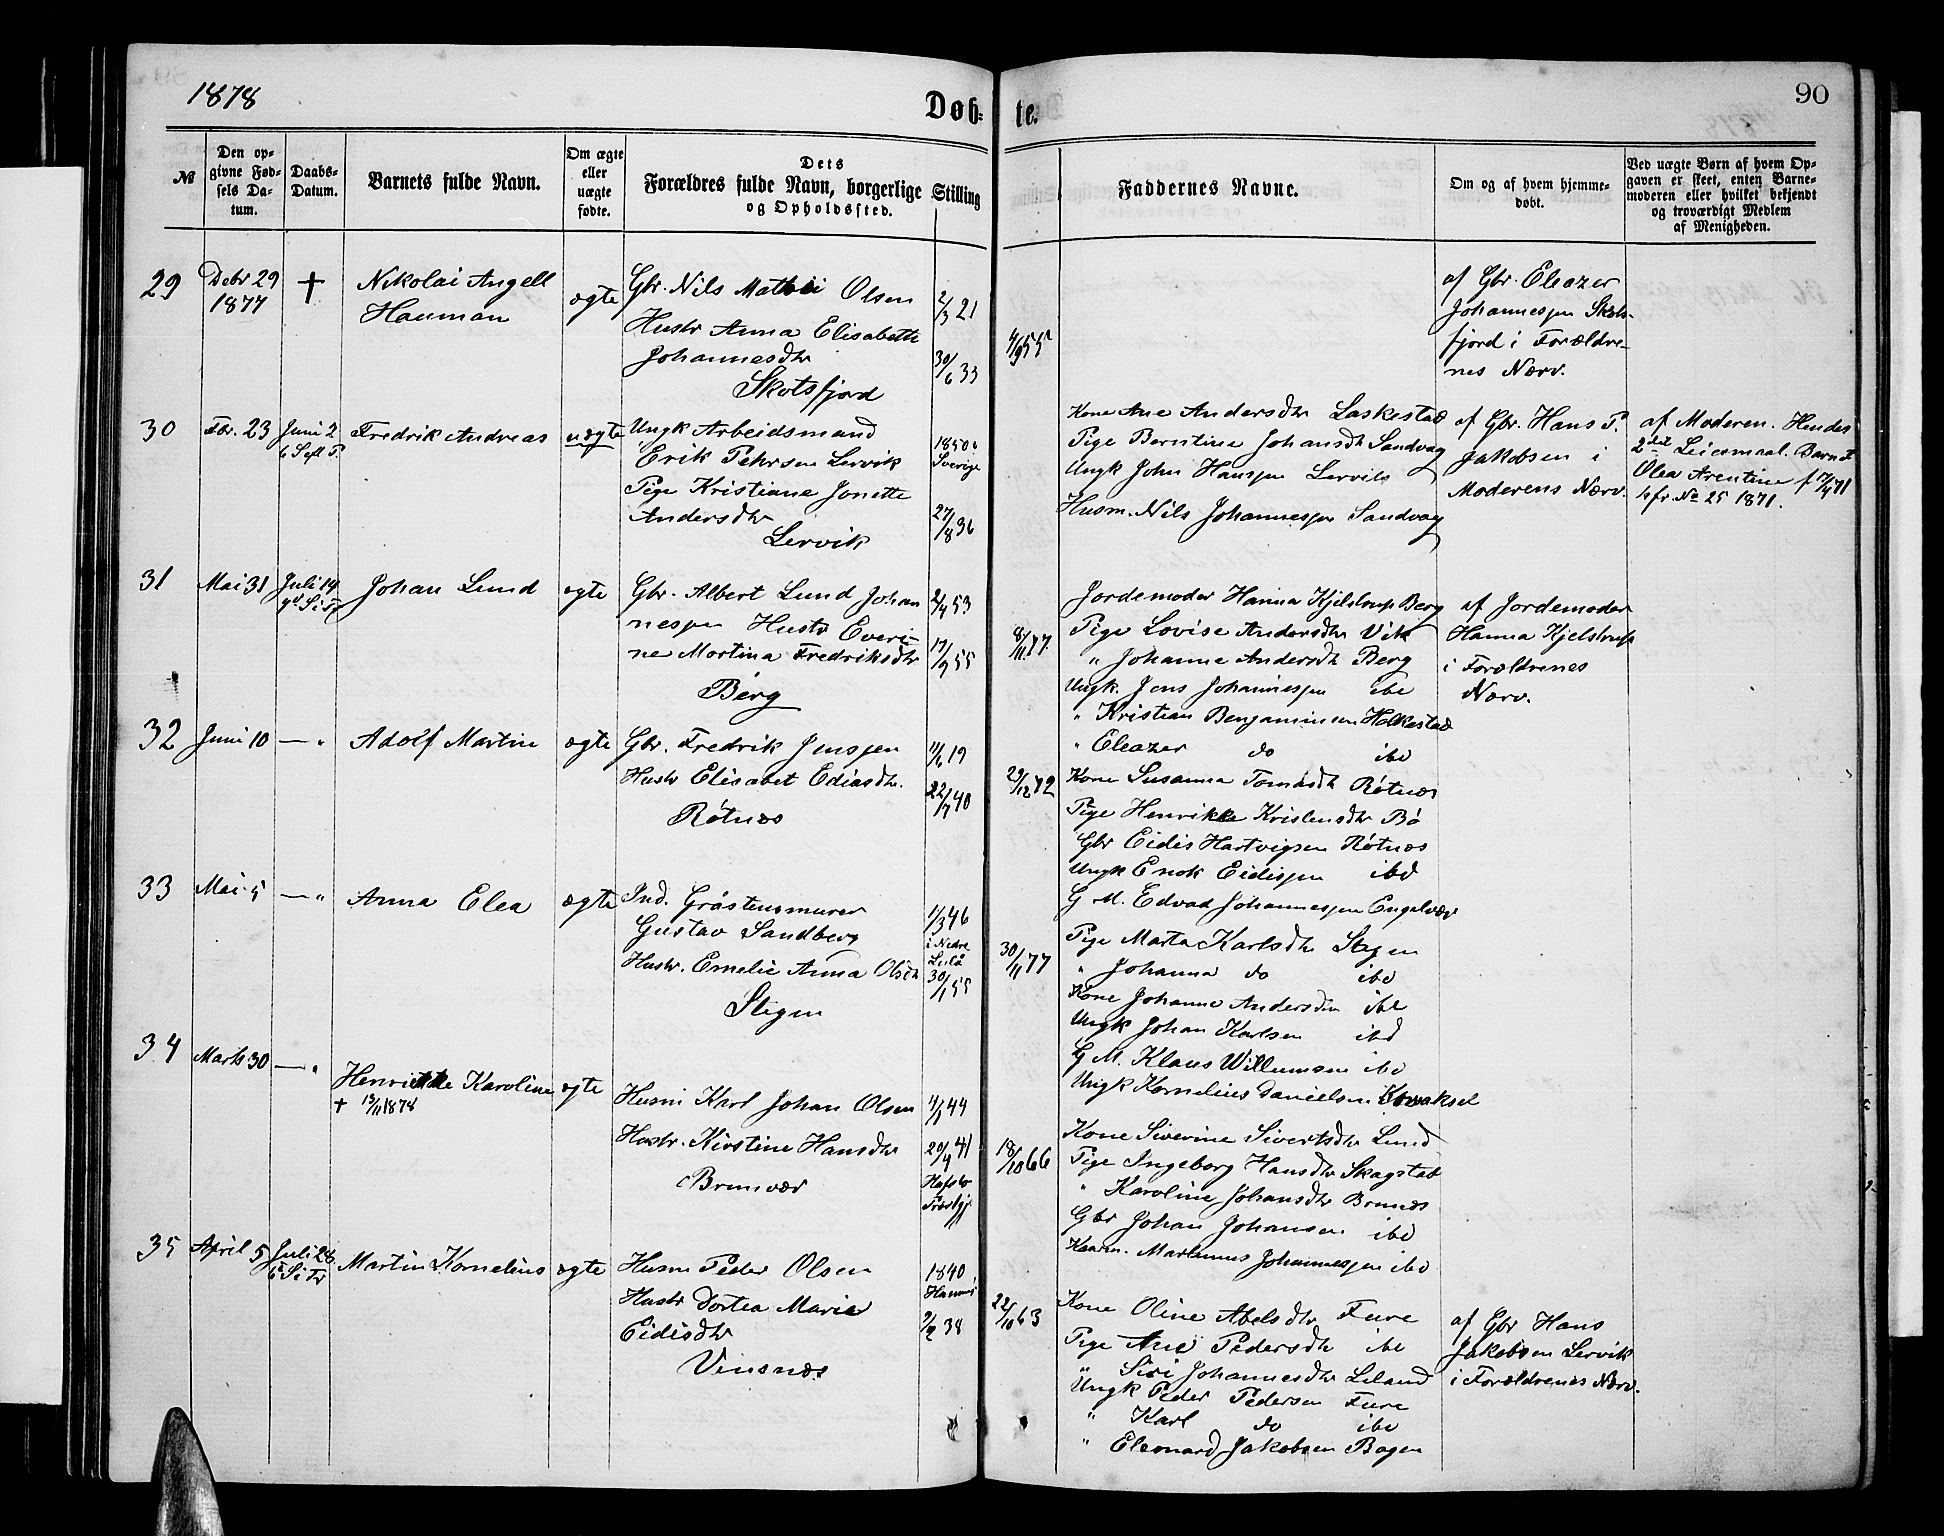 1878
90
Døb- te.
№
Den op-
givne Fød-
sels Da-
tum.
Daabs-
Datum.
Barnets fulde Navn.
Om ægte
eller
uægte
fødte.
Dets
Forældres fulde Navn, borgerlige Stilling
og Opholdssted.
Faddernes Navne.
Om og af hvem hjemme-
døbt.
Ved uægte Børn af hvem Op-
gaven er skeet, enten Barne-
moderen eller hvilket bekjendt
og troværdigt Medlem
af Menigheden.
29
Debr 29
1877
†
Nikolai Angell
Hauman
ægte
Gbr. Nils Mathii Olsen
Hustr Anna Elisabeth
Johannesdtr
Skotsfjord
2/3 21
30/6 33
4/9 55
af Gbr. Eleazer
Johannessen Skots-
fjord i Forældre-
nes Nærv.
30
Fbr. 23
Juni 2
6 Seft P.
Fredrik Andreas
uægte
Ungk Arbeidsmand
Erik Pehrsen Lervik
Pige Kristiane Jonette
Andersdtr
Lervik
1850
Sverige
27/8 36
Kone Ane Andersdtr Laskestad
Pige Berntine Johansdtr Sandvag
Ungk John Hanssen Lervik
Husm. Nils Johannessen Sandvag
af Gbr. Hans P.
Jakobsen i
Moderens Nærv.
af Moderen. Hendes
2det Leiermaal. Barn 1
Olea Arentine f 17/4 71
hfr. No 25 1871.
31
Mai 31
Juli 14
Johan Lund
ægte
Gbr. Albert Lund Johan
nessen Hustr Everi-
ne Martina Fredriksdtr
Berg
2/4 53
17/9 55
8/11 77.
Jordemoder Hanna Kjelstrup Berg
Pige Lovise Andersdtr Vik
" Johanne Andersdtr Berg
Ungk. Jens Johannessen ibd
" Kristian Benjaminsen Helkestad
" Eleazer do ibd
af Jordemoder
Hanna Kjelstrup
i Forældrenes
Nærv.
32
Juni 10
— "
Adolf Martin
ægte
Gbr. Fredrik Jenssen
Hustr Elisabet Ediasdtr.
Røtnæs
11/6 19
22/7 40
29/12 72
Kone Susanna Tomasdtr Røtnæs
Pige Henrikke Kristensdtr Bø
Gbr Eidis Hartvigsen Røtnæs
Ungk Enok Eidissen ibd
G M. Edvad Johannessen Engelvær
33
Mai 5
— "
Anna Elea
ægte
Ind. Gråstensmurer
Gustav Sandberg
Hustr. Emelie Anna Olsdtr
Stegen
1/3 46
i Nedre
Luleå
30/1 55
30/11 77
Pige Marta Karlsdtr Stegen
" Johanna do ibd
Kone Johanne Andersdtr ibd
Ungk Johan Karlsen ibd
G M. Klaus Willumsen ibd
Ungk Kornelius Danielsen
34
Marts 30
— "
Henriette Karoline
† 13/11 1878
ægte
Husm Karl Johan Olsen
Hustr. Kirstine Hansdtr
Brunvær
4/1 44
20/4 41
18/10 66
Kone Siverine Sivertsdtr Lund
Pige Ingeborg Hansdtr Skagstad
" Karoline Johansdtr Brunæs
Gbr Johan Johansen ibd
Kaarm. Martinus Johannessen ibd
35
April 5
Juli 28
Martin Kornelius
ægte
Husm Peder Olsen
Hustr Dortea Marie
Eidisdtr
Vinsnæs
1840
Hamnø
2/2 38
22/10 63
Kone Oline Abelsdtr Fure
Pige Ane Pedersdtr ibd
" Siri Johannesdtr Leland
Ungk Peder Pedersen Fure
" Karl do ibd
" Eleonard Jakobsen Bogen
af Gbr Hans
Jakobsen Lervik
i Forældrenes Nærv.